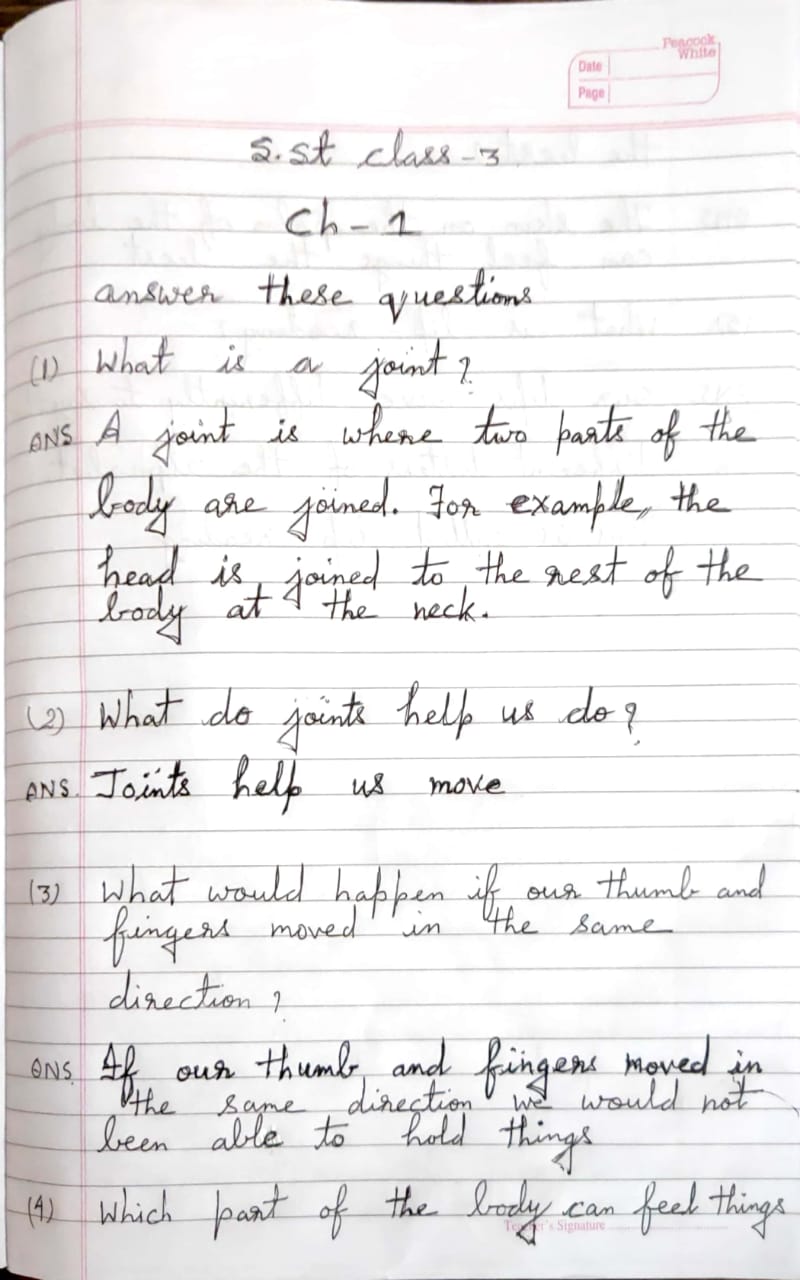 Peacock
White
Date
Page
S.St class-3
Ch-1
answer these questions
(1) What is a joint?
ANS A joint is where two parts of the
body are joined. For example, the
head is joined to the rest of the
body at the neck.
(2) What do joints help us do?
ANS. Joints help us move
(3) What would happen if our thumb and
fingers moved in the same
direction?
ANS. If our thumb and fingers moved in
the same direction we would not
been able to hold things
(4) Which part of the body can feel things
Teacher's Signature